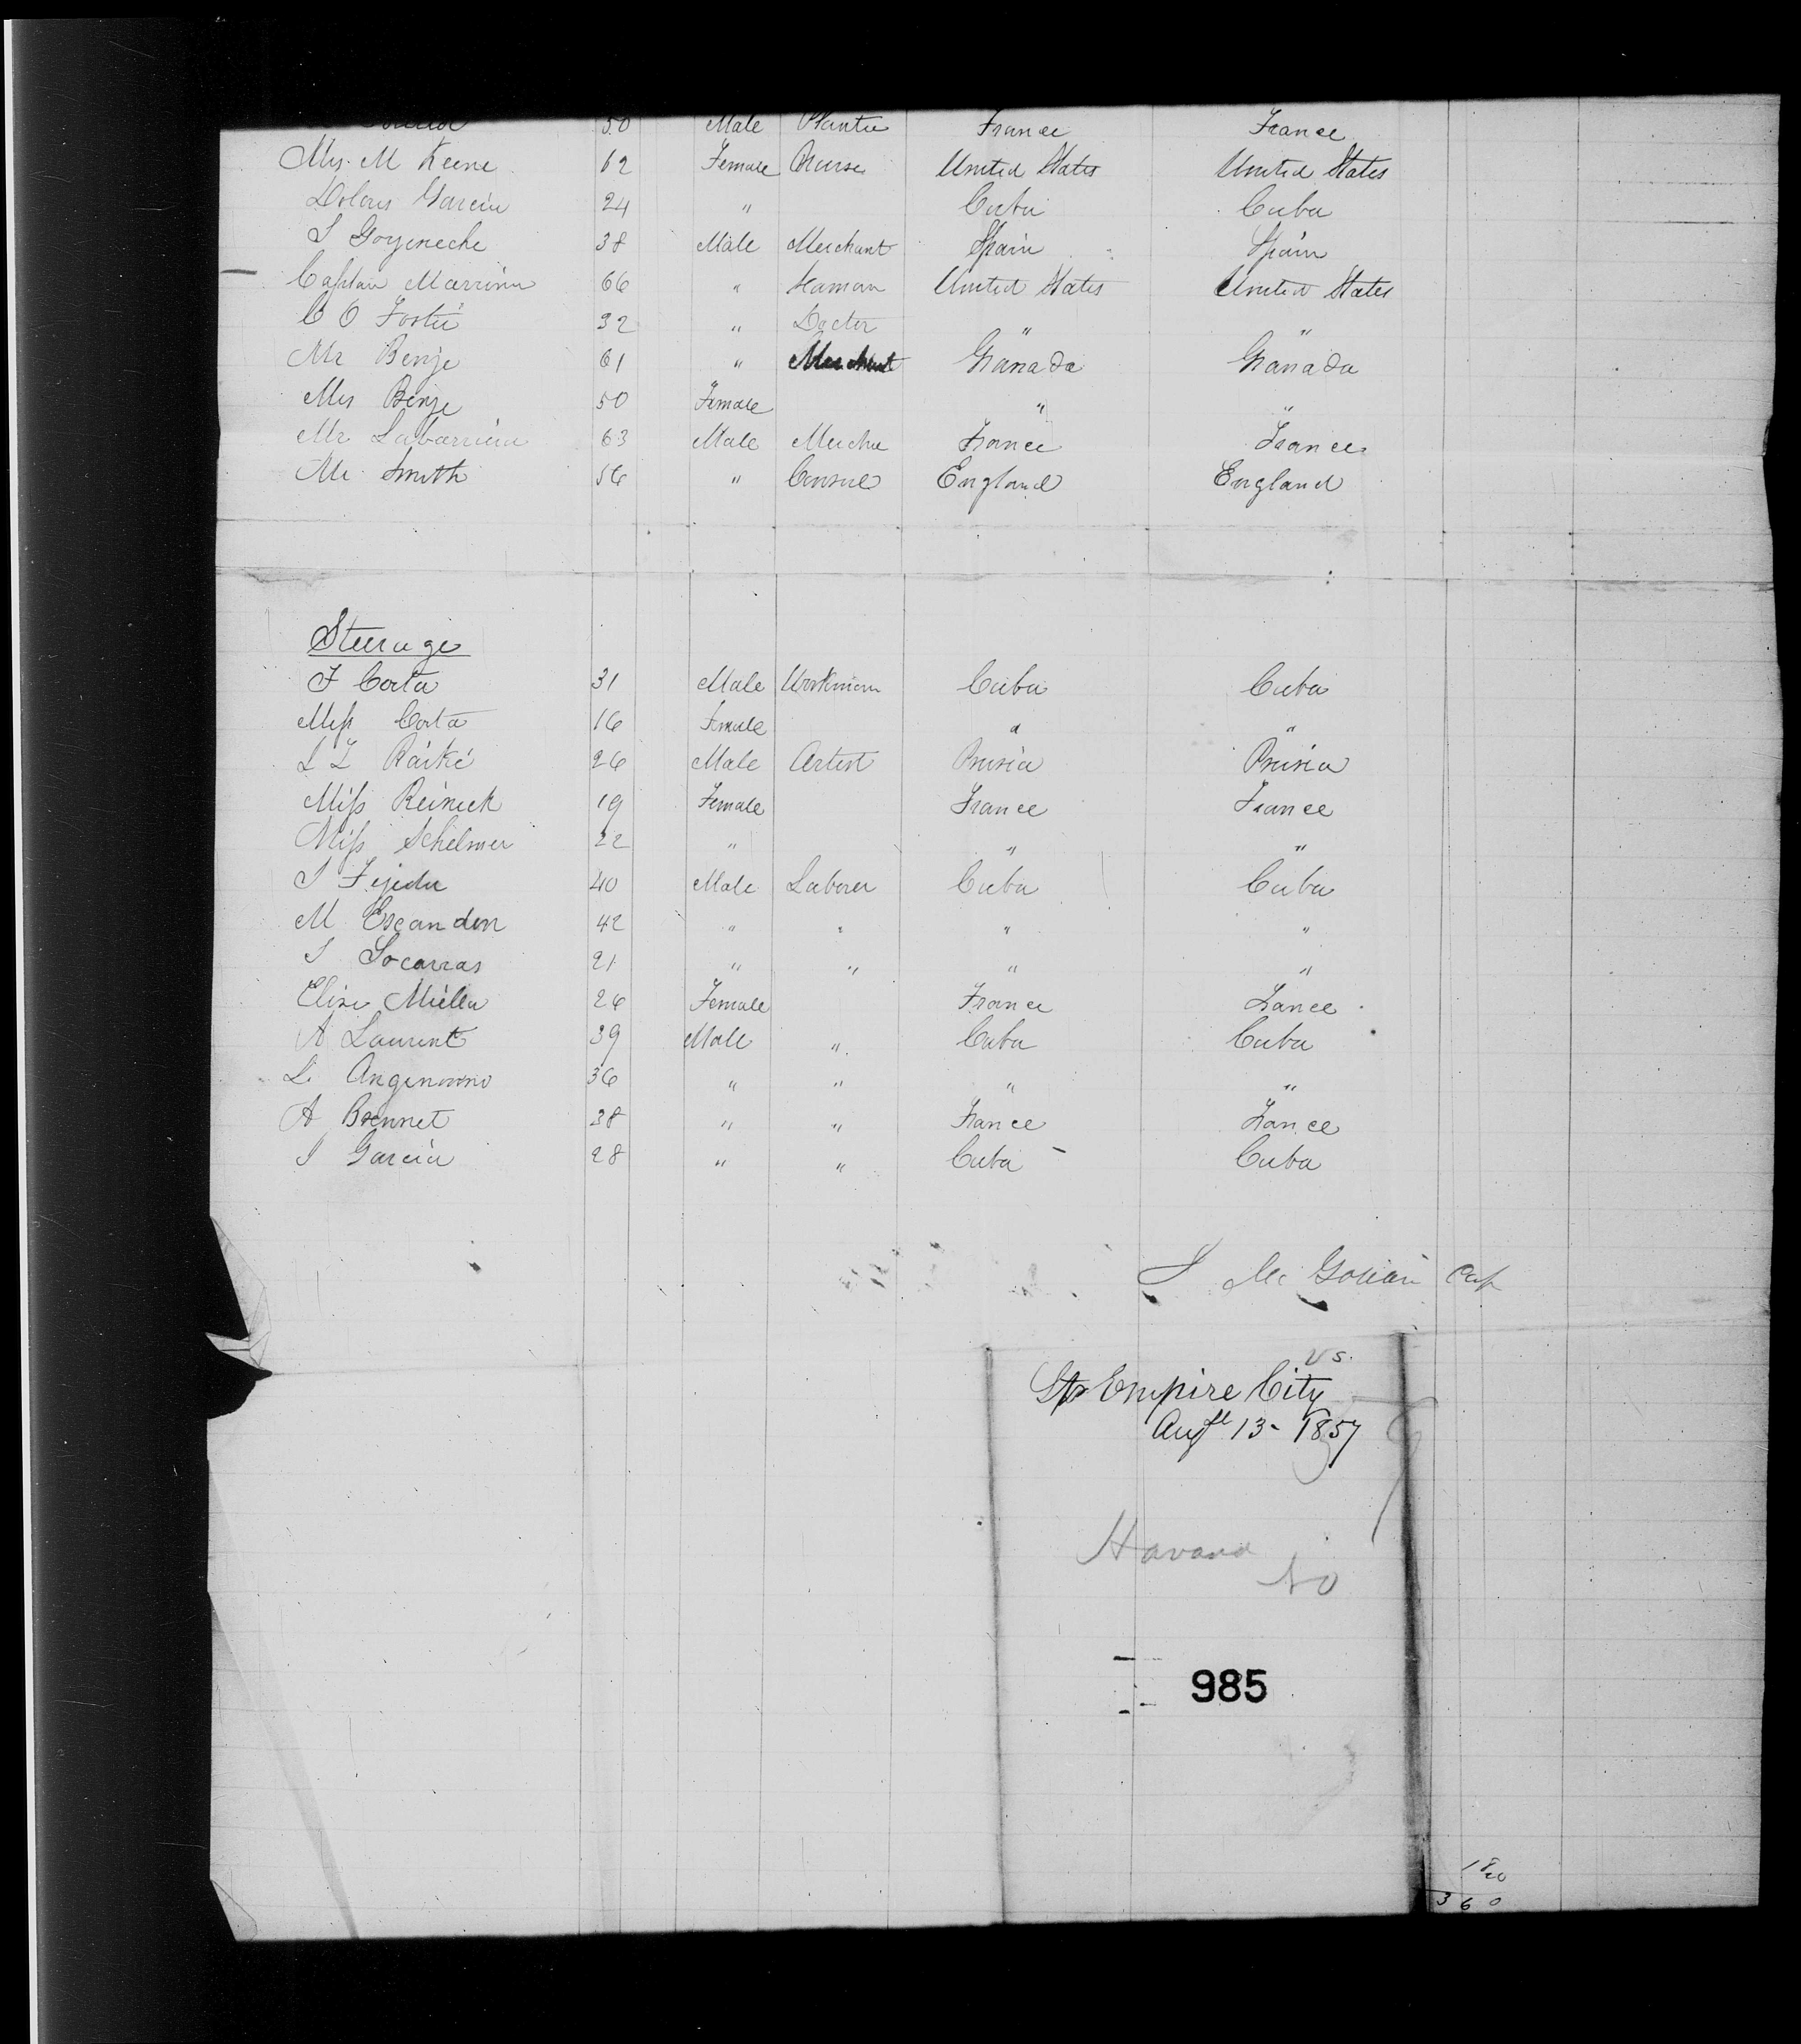 50 Male Planter France France
Mrs. M Keene 62 Female Nurse United States United States
Dolores Garcia 24 " Cuba Cuba
S Goyeneche 38 Male Merchant Spain Spain
Captain Marriner 66 " Seaman United States United States
C O Foster 32 " Docter " "
Mr Benje 61 " Merchant Granada Granada
Mrs Benje 50 Female " "
Mr Labarriere 63 Male Merchn France France
Mr Smith 56 " Consul England England
Steerage
F Corta 31 Male Workman Cuba Cuba
Miss Corta 16 Female " "
L L 26 Male Artist Prusia Prusia
Miss Reineck 19 Female France France
Miss Schelmer 22 " " "
S Fejeda 40 Male Laborer Cuba Cuba
M Escandon 42 " " " "
S Socarras 21 " " " "
Elise Miller 26 Female France France
A Laurent 39 Male " Cuba Cuba
L. 36 " " " "
A Bonnet 38 " " France France
S Garcia 28 " " Cuba Cuba
J Mc Gowan Cap
US.
Str Empire City
Augt 13 - 1857
Havana
NO
985
180
360